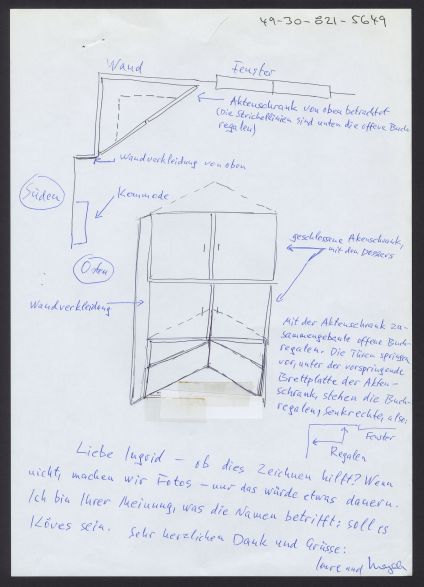 49-30-821-5649
Wand
Fenster
Aktenschrank von oben betrachtet
(Die Strichellinien sind unten die offene Buch-
regalen)
Wandverkleidung von oben
Süden
Kommode
geschlossene Aktenschrank,
mit den Dossiers
Osten
Wandverkleidung
Mit der Aktenschrank zu-
sammengebaute offene Buch-
regalen. Die Türen springen
vor, unter der vorspringende
Brettplatte der Akten-
schrank, stehen die Buch-
regalen, senkrechte, also:
Fenster
Regalen
Liebe Ingrid – ob dies Zeichnen hilft? Wenn
nicht, machen wir Fotos – nur das würde etwas dauern.
Ich bin Ihrer Meinung, was die Namen betrifft: soll es
Köves sein. Sehr herzlichen Dank und Grüsse:
Imre und